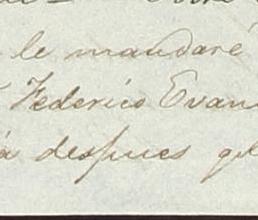 le mandaré
Federico Evan
despues qu